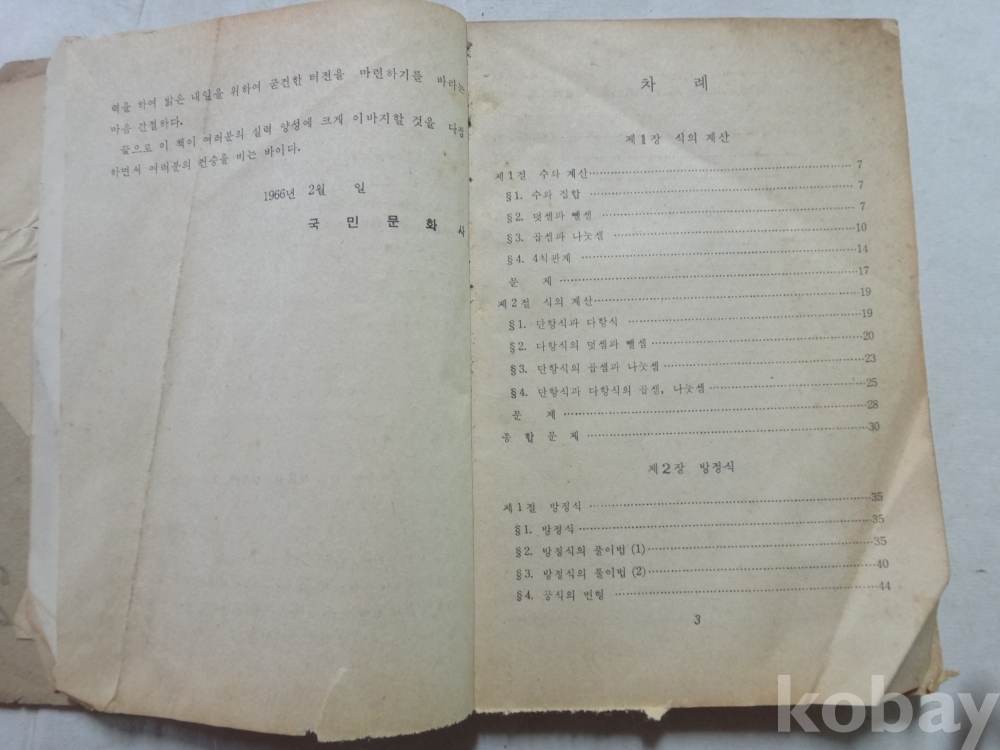 력을 하여 밝은 내일을 위하여 굳건한 터전을 마련하기를 바라는
마음 간절하다.
끝으로 이 책이 여러분의 실력 양성에 크게 이바지할 것을 다짐
하면서 여러분의 건승을 비는 바이다.
1966년 2월 일
국 민 문 화 사
차 례
제1장 식의 계산
제1절 수와 계산 7
§1. 수와 집합 7
§2. 덧셈과 뺄셈 7
§3. 곱셈과 나눗셈 10
§4. 4칙관계 14
문 제 17
제2절 식의 계산 19
§1. 단항식과 다항식 19
§2. 다항식의 덧셈과 뺄셈 20
§3. 단항식의 곱셈과 나눗셈 23
§4. 단항식과 다항식의 곱셈, 나눗셈 25
문 제 28
종 합 문 제 30
제2장 방정식
제1절 방정식 35
§1. 방정식 35
§2. 방정식의 풀이법 (1) 35
§3. 방정식의 풀이법 (2) 40
§4. 공식의 변형 44
3
kobay